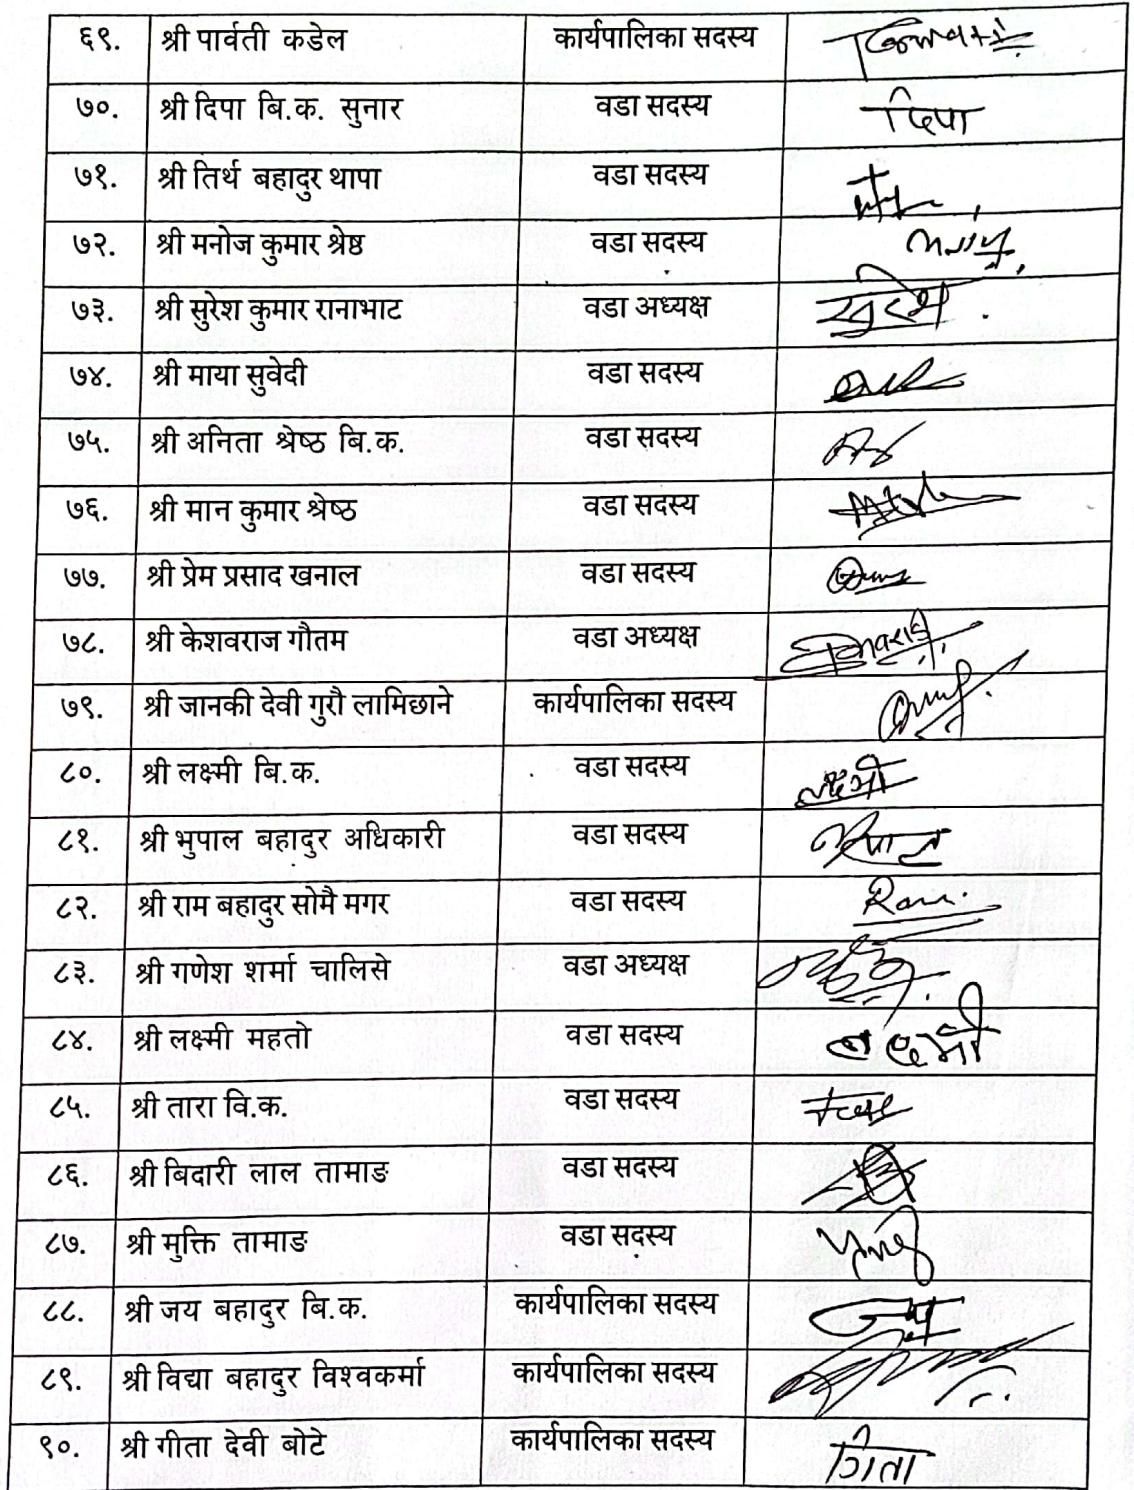 ६९. श्री पार्वती कडेल कार्यपालिका सदस्य
७०. श्री दिपा बि.क. सुनार वडा सदस्य दिपा
७१. श्री तिर्थ बहादुर थापा वडा सदस्य
७२. श्री मनोज कुमार श्रेष्ठ वडा सदस्य
७३. श्री सुरेश कुमार रानाभाट वडा अध्यक्ष
७४. श्री माया सुवेदी वडा सदस्य
७५. श्री अनिता श्रेष्ठ बि.क. वडा सदस्य
७६. श्री मान कुमार श्रेष्ठ वडा सदस्य
७७. श्री प्रेम प्रसाद खनाल वडा सदस्य
७८. श्री केशवराज गौतम वडा अध्यक्ष
७९. श्री जानकी देवी गुरौ लामिछाने कार्यपालिका सदस्य
८०. श्री लक्ष्मी बि.क. वडा सदस्य
८१. श्री भुपाल बहादुर अधिकारी वडा सदस्य
८२. श्री राम बहादुर सोमै मगर वडा सदस्य
८३. श्री गणेश शर्मा चालिसे वडा अध्यक्ष
८४. श्री लक्ष्मी महतो वडा सदस्य
८५. श्री तारा वि.क. वडा सदस्य
८६. श्री बिदारी लाल तामाङ वडा सदस्य
८७. श्री मुक्ति तामाङ वडा सदस्य
८८. श्री जय बहादुर बि.क. कार्यपालिका सदस्य
८९. श्री विद्या बहादुर विश्वकर्मा कार्यपालिका सदस्य
९०. श्री गीता देवी बोटे कार्यपालिका सदस्य गिता